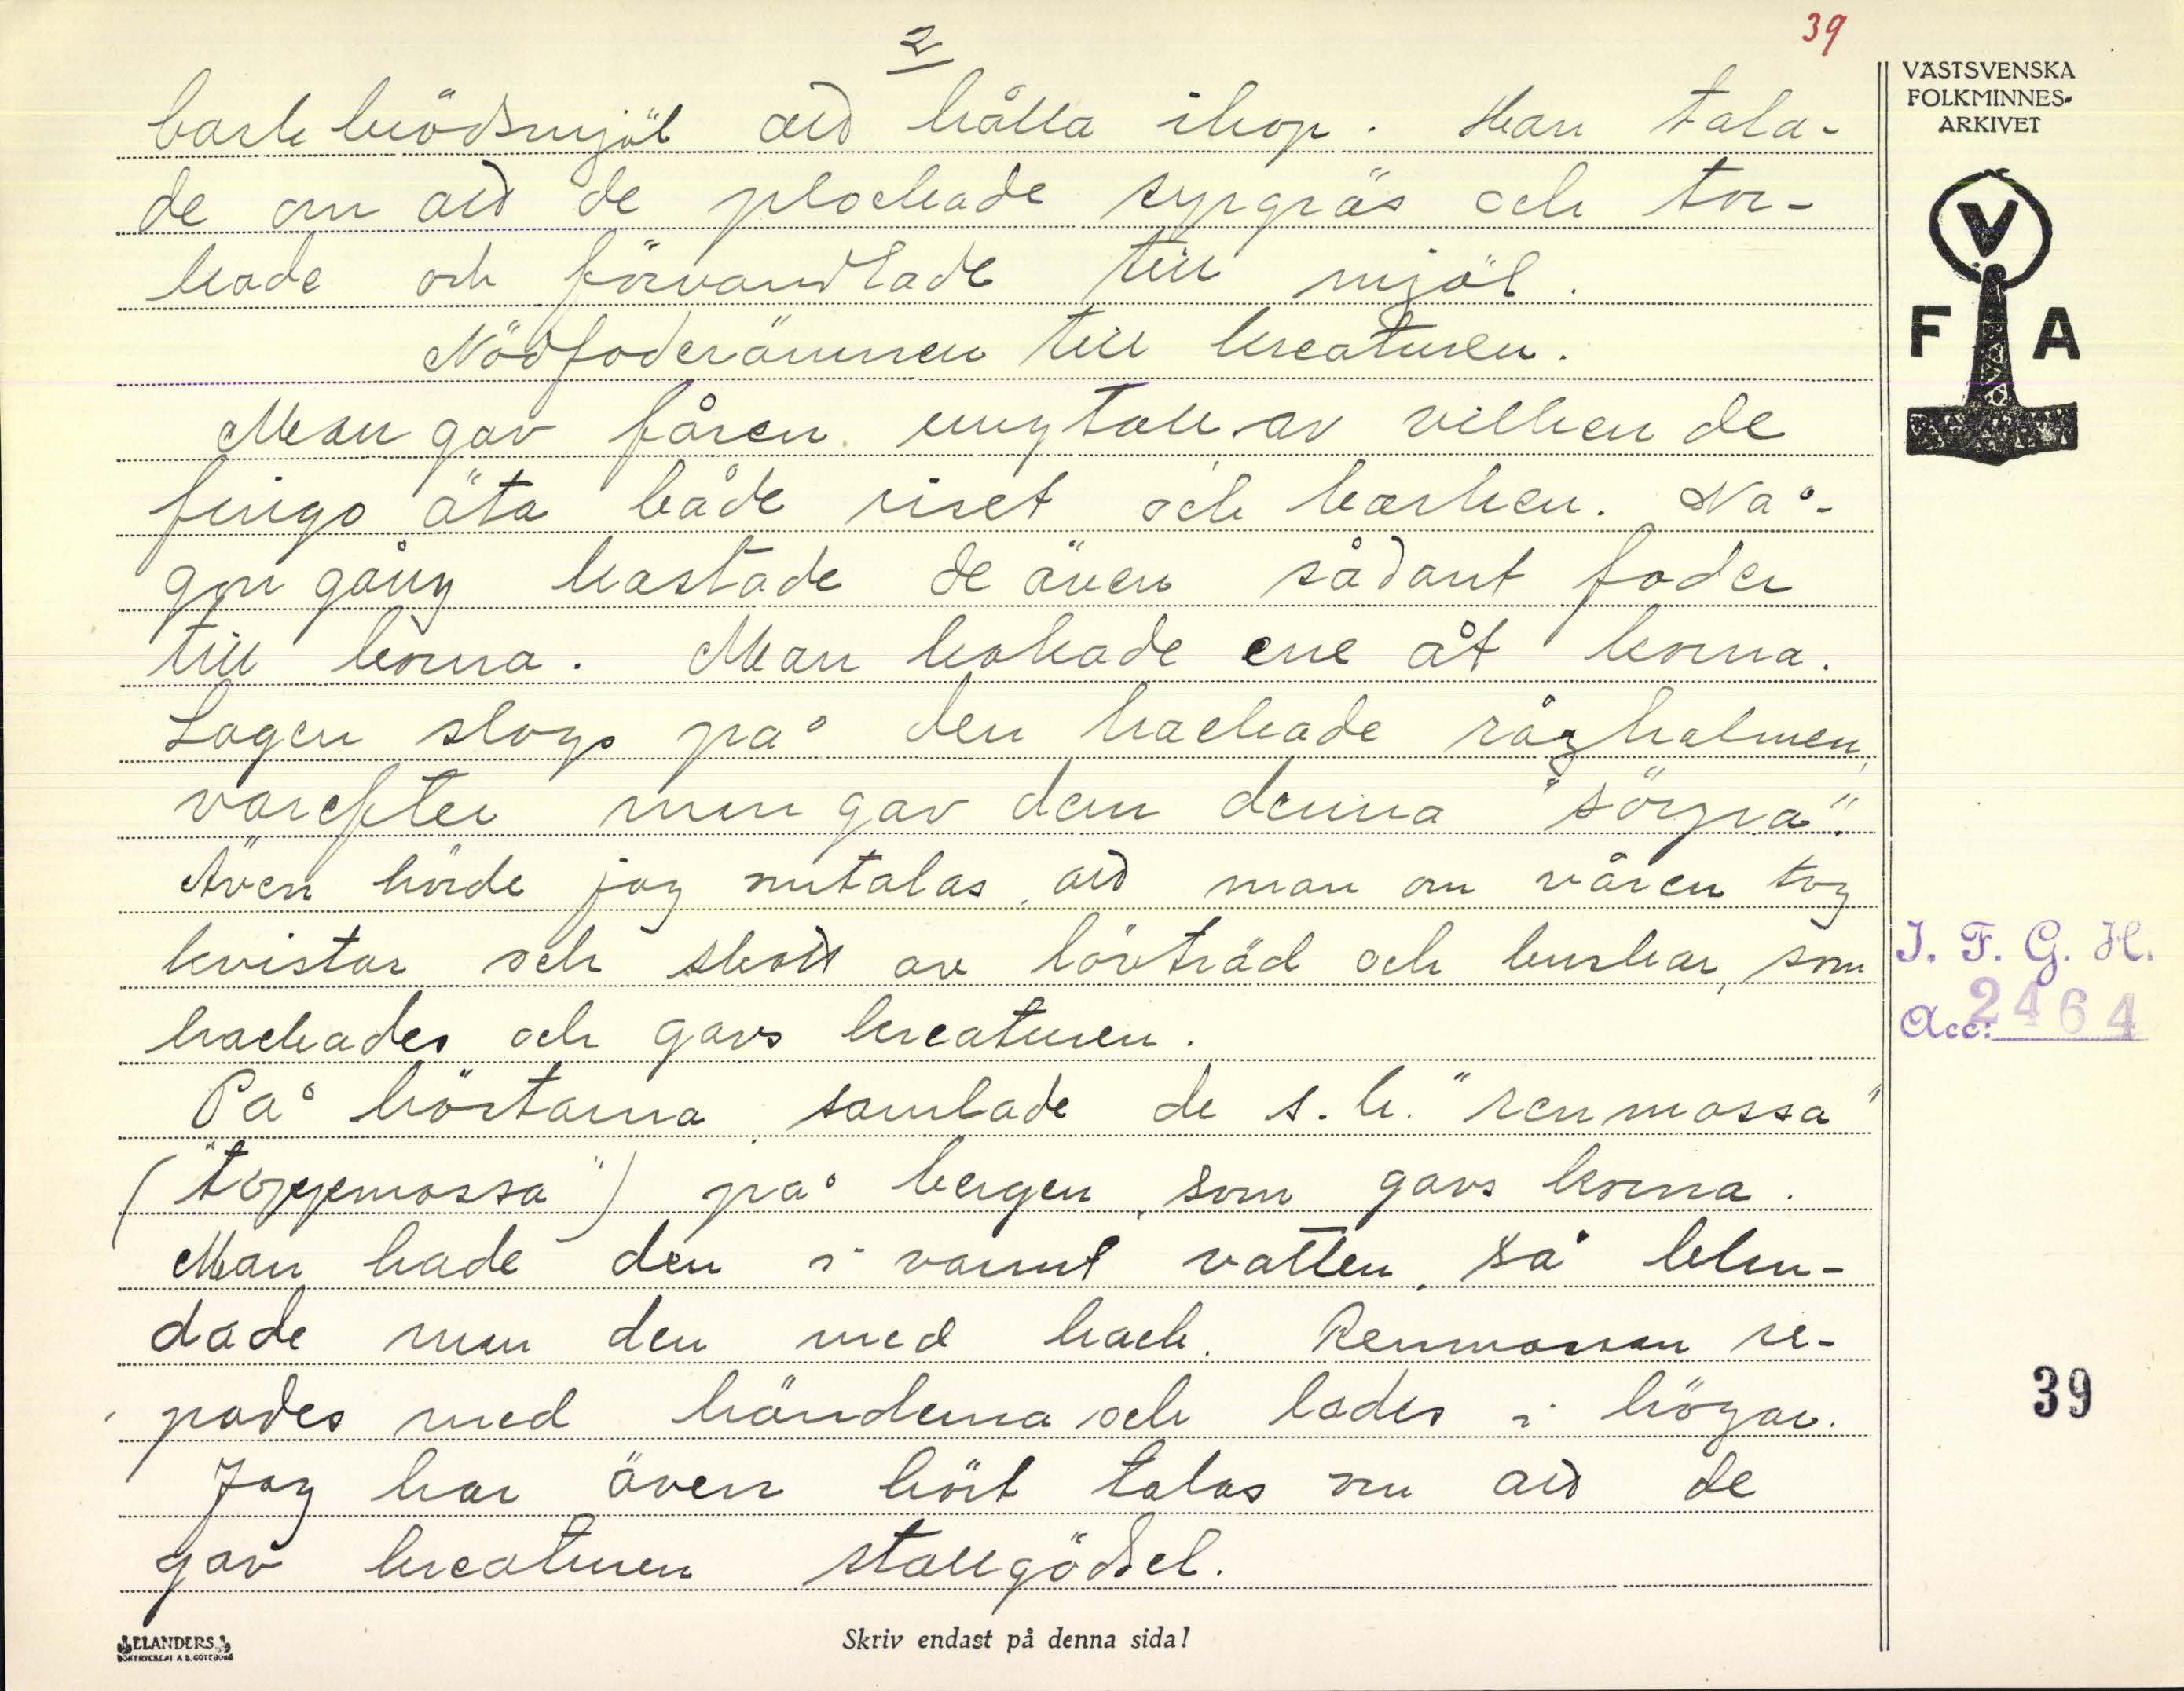 2
39
barkbrödsmjöl att hålla ihop. Han tala-
de om att de plockade syrgräs och tor-
kade och förvandlade till mjöl.
Nödfoderämnen till kreaturen.
Man gav fåren ungtall av vilken de
fingo äta både riset och barken. Nå-
gon gång kastade de även sådant foder
till korna. Man kokade ene åt korna.
Lagen slogs på den hackade råghalmen,
varefter man gav dem denna "sörpa".
Även hörde jag omtalas, att man om våren tog
kvistar och skott av lövträd och buskar, som
hackades och gavs kreaturen.
På höstarna samlade de s.k. "renmossa"
("toppmossa") på bergen, som gavs korna.
Man hade den i varmt vatten, så blan-
dade man den med hack. Renmossan re-
pades med händerna och lades i högar.
Jag har även hört talas om att de
gav kreaturen stallgödsel.
VÄSTSVENSKA
FOLKMINNES-
ARKIVET
V
F A
I. F. G. H.
Acc: 2464
39
ELANDERS
BOKTRYCKERI A.B. GÖTEBORG
Skriv endast på denna sida!